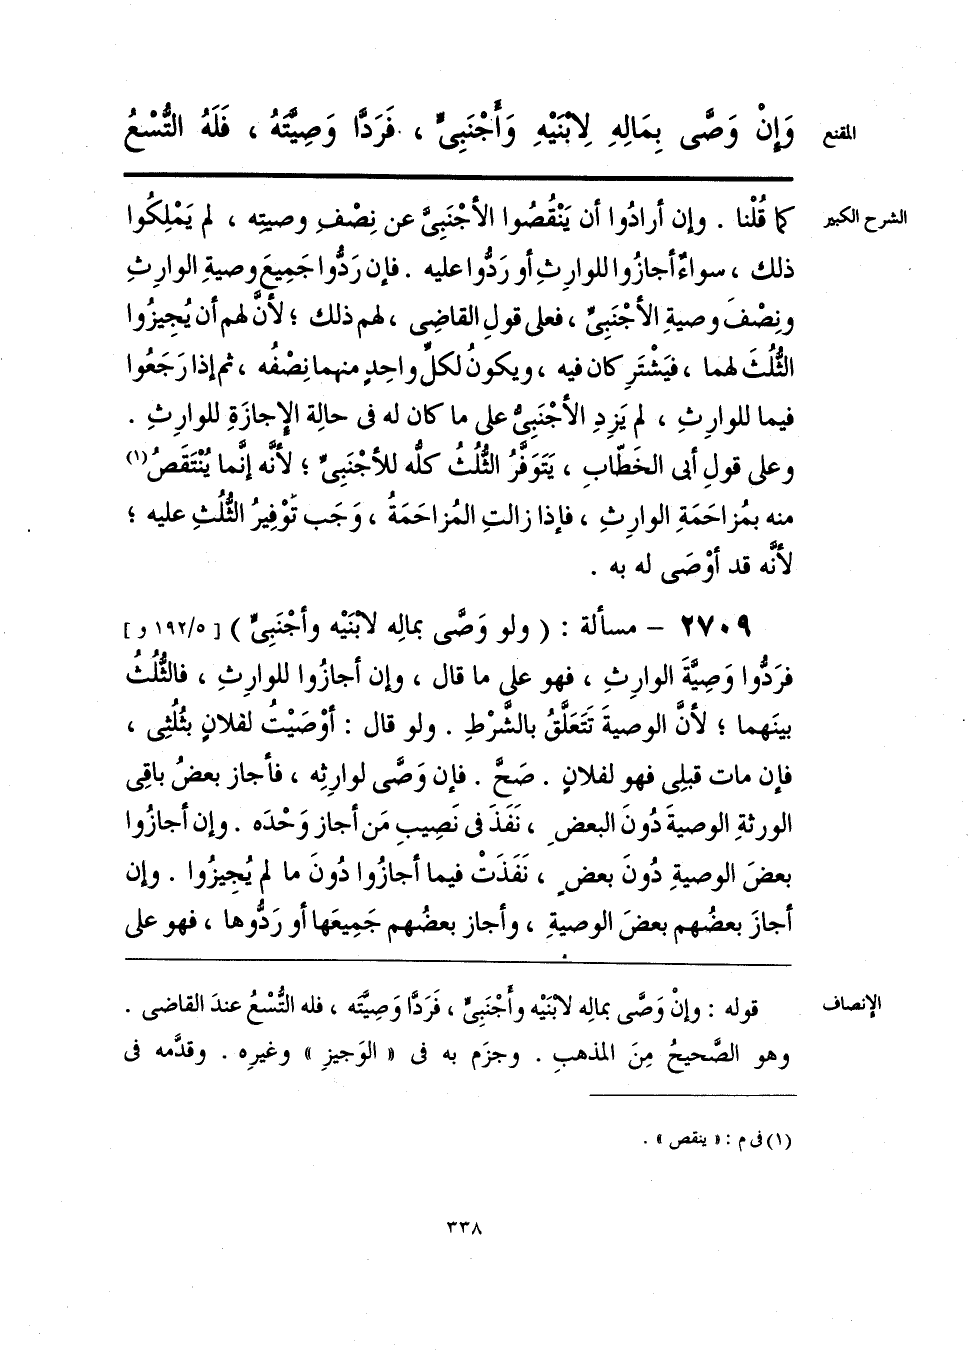 المقنع
وَإِنْ وَصَّى بِمَالِهِ لِابْنَيْهِ وَأَجْنَبِىٍّ ، فَرَدَّا وَصِيَّتَهُ ، فَلَهُ التُّسْعُ
الشرح الكبير
كما قُلْنا . وإن أرادُوا أن يَنْقُصُوا الأجْنَبِىَّ عن نِصْفِ وصيتِه ، لم يَمْلِكُوا
ذلك ، سواءٌ أجازُوا للوارِثِ أو رَدُّوا عليه . فإن رَدُّوا جَمِيعَ وصيةِ الوارِثِ
ونِصْفَ وصيةِ الأجْنَبِىِّ ، فعلى قولِ القاضِى ، لهم ذلك ؛ لأنَّ لهم أن يُجِيزُوا
الثُّلُثَ لهما ، فيَشْتَرِكان فيه ، ويكونُ لكلِّ واحِدٍ منهما نِصْفُه ، ثم إذا رَجَعُوا
فيما للوارِثِ ، لم يَزِدِ الأجْنَبِىُّ على ما كان له فى حالةِ الإِجازَةِ للوارِثِ .
وعلى قولِ أبى الخَطّابِ ، يَتَوَفَّرُ الثُّلُثُ كلُّه للأجْنَبِىِّ ؛ لأنَّه إنَّما يُنْتَقَصُ(١)
منه بمُزاحَمَةِ الوارِثِ ، فإذا زالتِ المُزاحَمَةُ ، وَجَب تَوْفِيرُ الثُّلُثِ عليه ؛
لأنَّه قد أوْصَى له به .
٢٧٠٩ - مسألة : ( ولو وَصَّى بمالِه لابْنَيْه وأجْنَبِىٍّ ) [ ١٩٢/٥ و ]
فرَدُّوا وَصِيَّةَ الوارِثِ ، فهو على ما قال ، وإن أجازُوا للوارِثِ ، فالثُّلُثُ
بينَهما ؛ لأنَّ الوصيةَ تَتَعَلَّقُ بالشَّرْطِ . ولو قال : أوْصَيْتُ لفلانٍ بثُلُثِى ،
فإن مات قبلِى فهو لفلانٍ . صَحَّ . فإن وَصَّى لوارِثِه ، فأجاز بعضُ باقِى
الورثةِ الوصيةَ دُونَ البعضِ ، نَفَذَ فى نَصِيبِ مَن أجاز وَحْدَه . وإن أجازُوا
بعضَ الوصيةِ دُونَ بعضٍ ، نَفَذَتْ فيما أجازُوا دُونَ ما لم يُجِيزُوا . وإن
أجازَ بعضُهم بعضَ الوصيةِ ، وأجاز بعضُهم جَمِيعَها أو رَدُّوها ، فهو على
الإنصاف
قوله : وإنْ وَصَّى بمالِه لابْنَيْه وأَجْنَبِىٍّ ، فَرَدَّا وَصِيَّتَه ، فله التُّسْعُ عندَ القاضى .
وهو الصَّحيحُ مِنَ المذهبِ . وجزَم به فى « الوَجيزِ » وغيرِه . وقدَّمه فى
(١) فى م : « ينقص » .
٣٣٨